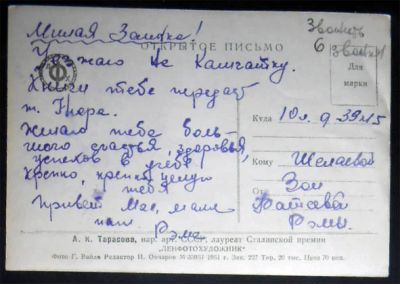 Милая Заинка!
ОТКРЫТОЕ ПИСЬМО
Уезжаю на Камчатку.
Книги тебе передаст
т. Гнора.
Желаю тебе боль-
шого счастья, здоровья,
успехов в учебе!
Крепко, крепко целую
тебя
Привет Мае, маме
папе
Рэма
Звонить
6 звонки
Для
марки
Куда
10 л. 9-39-15
Кому
Шелаевой
Зои
От
Фатеева
Рэмы.
А. К. Тарасова, нар. арт. СССР, лауреат Сталинской премии
„ЛЕНФОТОХУДОЖНИК"
Фото Г. Вайля Редактор И. Овчаров 1951 г. Зак. 227 Тир. 20 тыс. Цена 70 коп.